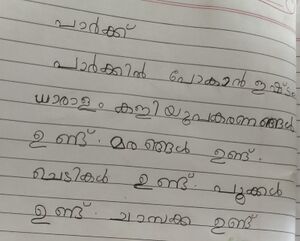 പാർക്ക്
പാർക്കിൻ പോകാൻ ഇഷ്ടം
ധാരാളം കളിയുപകരണങ്ങൾ
ഉണ്ട്. മരങ്ങൾ ഉണ്ട്.
ചെടികൾ ഉണ്ട്. പൂക്കൾ
ഉണ്ട്. ചാമ്പക്ക ഉണ്ട്